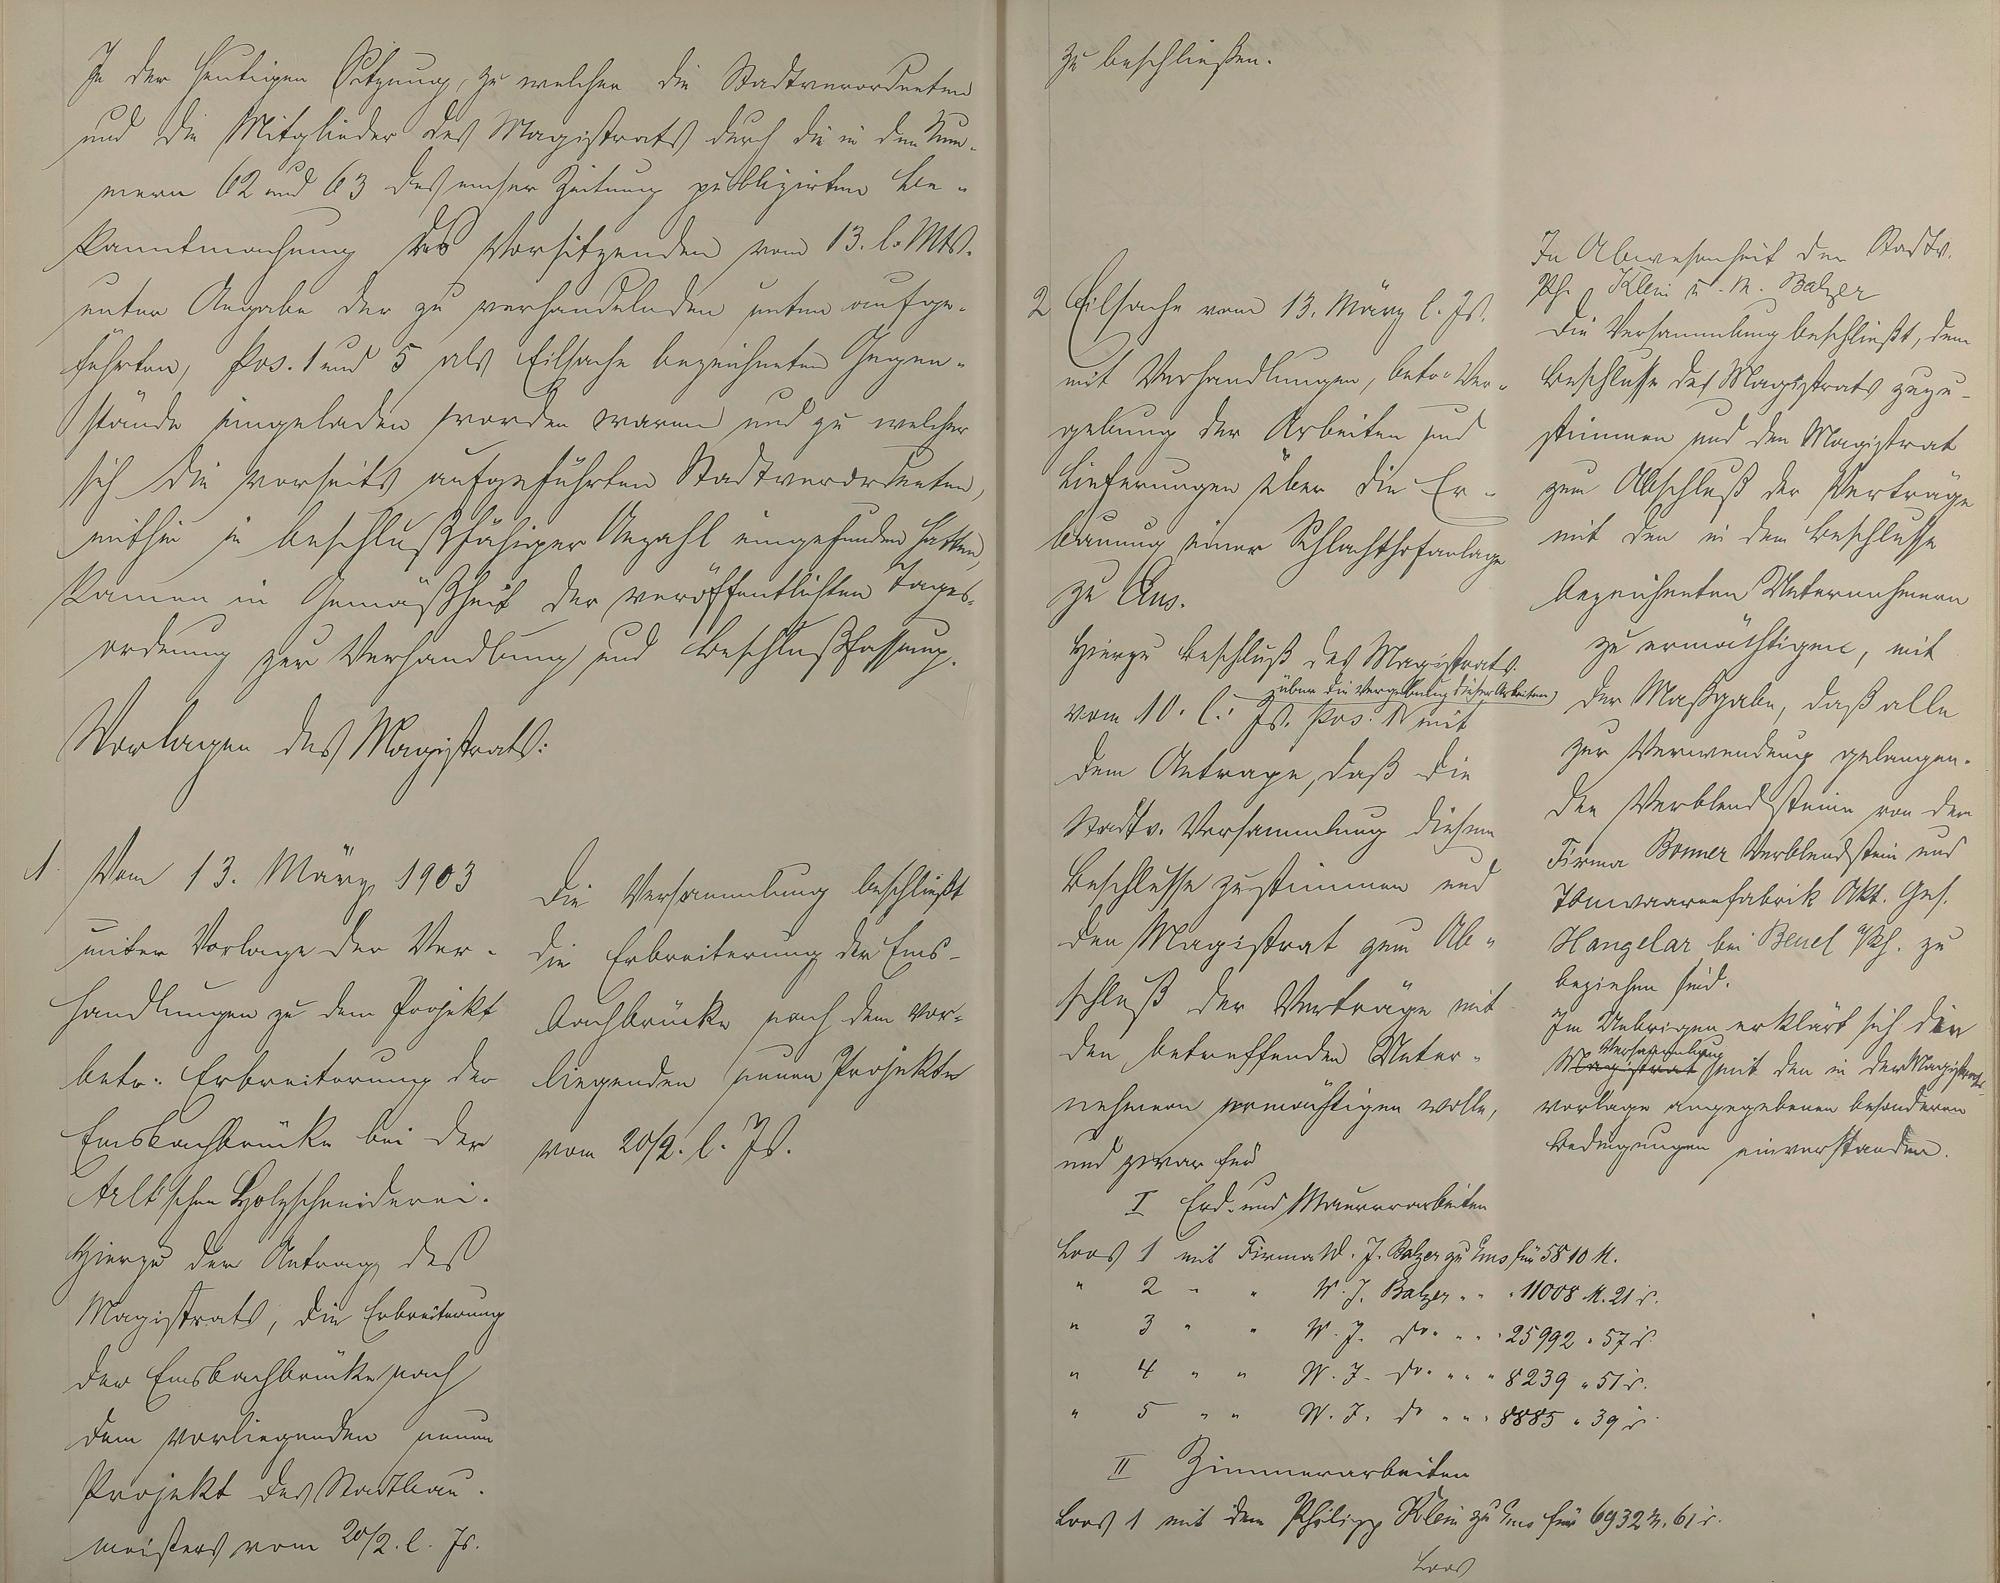 In der heutigen Sitzung, zu welcher die Stadtverordneten
und die Mitglieder des Magistrats durch die in den Num-
mern 62 und 63 des emser Zeitung publizirten Be-
kanntmachung des Vorsitzenden vom 13. l. Mts.
unter Angabe der zu verhandelnden unten aufge-
führten, Pos. 1 und 5 als Eilsache bezeichneten Gegen-
stände eingeladen worden waren und zu welcher
sich die vorseits aufgeführten Stadtverordneten,
mithin in beschlußfähiger Anzahl eingefunden hatten,
kamen in Gemäßheit der veröffentlichten Tages-
ordnung zur Verhandlung und Beschlußfassung.
Vorlagen des Magistrats:
1. Vom 13. März 1903
unter Vorlage der Ver-
handlungen zu dem Projekt
betr. Erbreiterung der
Emsbachbrücke bei der
schen Holzschneiderei.
Hierzu der Antrag des
Magistrats, die Erbreiterung
der Emsbachbrücke nach
dem vorliegenden neuen
Projekt des Stadtbau-
meisters vom 20/2. l. Js.
Die Versammlung beschließt
die Erbreiterung der Ems-
bachbrücke nach dem vor-
liegenden neuen Projekte
vom 20/2. l. Js.
zu beschließen.
2 Eilsache vom 13. März l. Js.
mit Verhandlungen, betr. Ver-
gebung der Arbeiten und
Lieferungen über die Er-
bauung einer Schlachthofanlage
zu Ems.
Hierzu Beschluß des Magistrats
über die Vergebung dieser Arbeiten
vom 10. l. Js. Pos. 1 mit
dem Antrage, daß die
Stadtv. Versammlung diesem
Beschlusse zustimmen und
den Magistrat zum Ab-
schluß der Verträge mit
den betreffenden Unter-
nehmern ermächtigen wolle,
und zwar für
I Erd- und Maurerarbeiten
Loos 1 mit Firma W. J. Balzer zu Ems für 5810 M.
" 2 " " W. J. Balzer " " " 11008 M. 21 d.
" 3 " " W. J. do. " " " 25992 " 57 d.
" 4 " " W. J. do. " " " 8239 " 51 d.
" 5 " " W. J. do " " " 8885 " 39 d.
II Zimmerarbeiten
Loos 1 mit dem Philipp Klein zu Ems für 6932 M. 61 d.
Loos
In Abwesenheit der Stadtv.
Ph. Klein u. M. Balzer
Die Versammlung beschließt, dem
Beschlusse des Magistrats zuzu-
stimmen und den Magistrat
zum Abschluß der Verträge
mit den in dem Beschlusse
bezeichneten Unternehmern
zu ermächtigen, mit
der Maßgabe, daß alle
zur Verwendung gelangen-
den Verblendsteine von der
Firma Bonner Verblendstein und
Thonwaarenfabrik Akt. Ges.
Hangelar bei Beuel a/Rh. zu
beziehen sind.
Im Uebrigen erklärt sich die
Versammlung
Magistrat mit den in der Magistrats-
vorlage angegebenen besonderen
Bedingungen einverstanden.